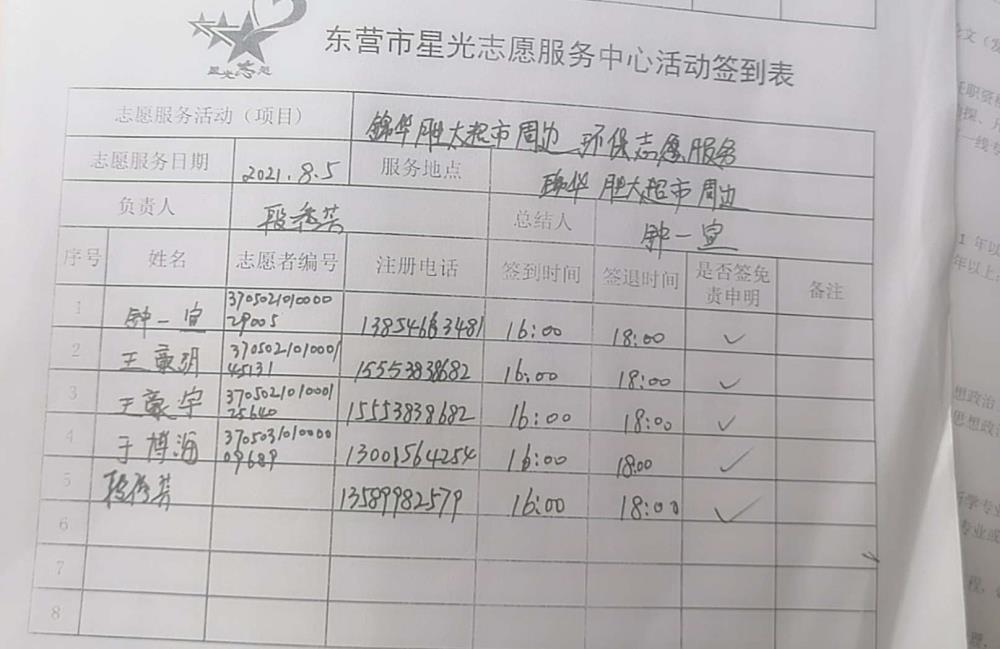 星光志愿
东营市星光志愿服务中心活动签到表
志愿服务活动（项目） 锦华胜大超市周边 环保志愿服务
志愿服务日期 2021.8.5 服务地点 锦华胜大超市周边
负责人 段秀芳 总结人 钟一宣
序号 姓名 志愿者编号 注册电话 签到时间 签退时间 是否签免责申明 备注
1 钟一宣 370502101000029005 13854663481 16:00 18:00 ✓
2 王豪玥 370502101000145131 15553838682 16:00 18:00 ✓
3 王豪宇 370502101000125640 15553838682 16:00 18:00 ✓
4 于博海 370503101000009689 13001564254 16:00 18:00 ✓
5 段秀芳 13589982579 16:00 18:00 ✓
6
7
8